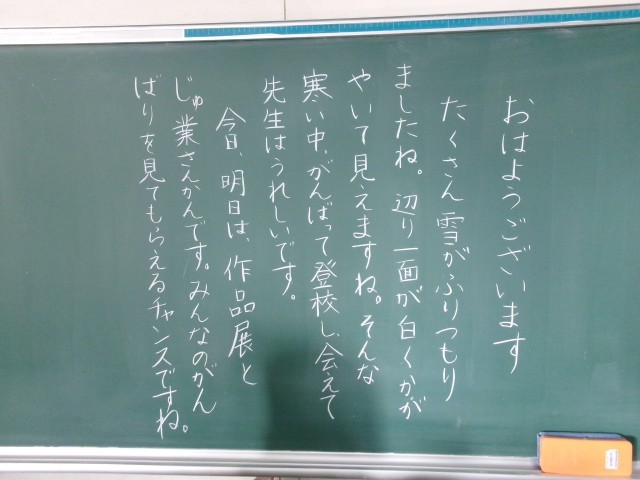 おはようございます
たくさん雪がふりつもり
ましたね。辺り一面が白くかが
やいて見えますね。そんな
寒い中、がんばって登校し、会えて
先生はうれしいです。
今日、明日は、作品展と
じゅ業さんかんです。みんなのがん
ばりを見てもらえるチャンスですね。